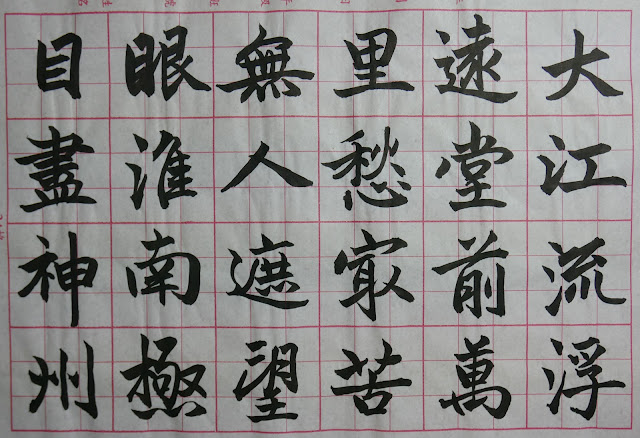 大江流浮
遠堂前萬
里愁㝡苦
無人遮望
眼淮南極
目盡神州